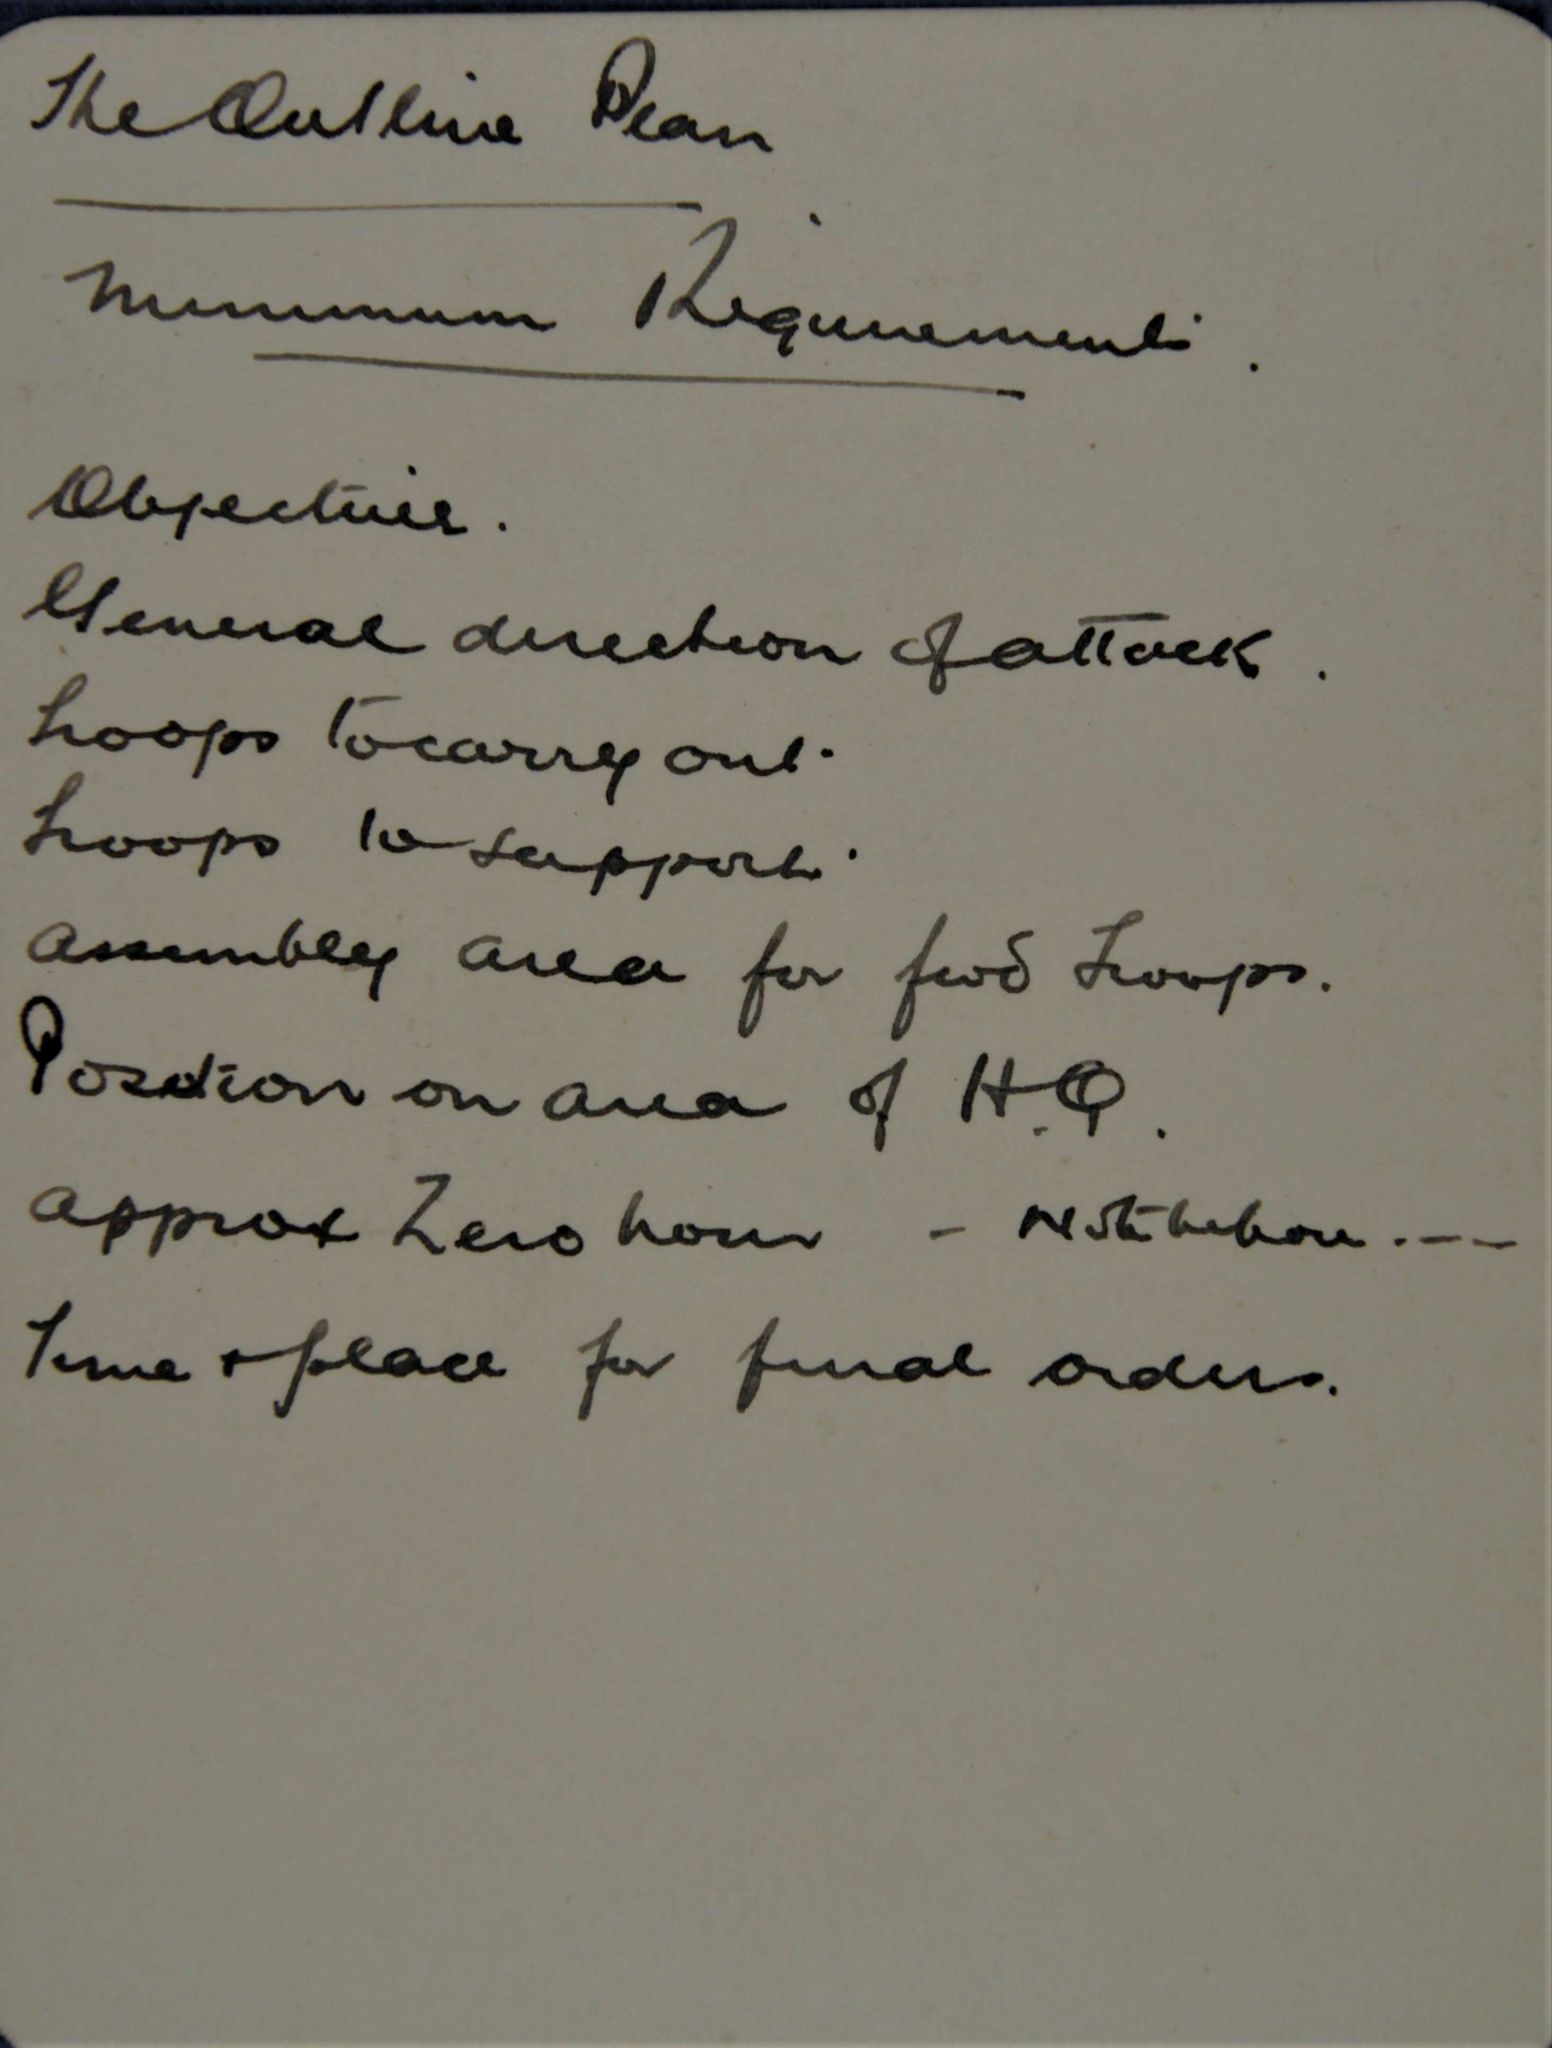 The Outline Plan
Minimum Requirements.
Objective.
General direction of attack.
Troops to carry out.
Troops to support.
Assembly area for fwd troops.
Position or area of H.Q.
Approx Zero hour - Not before ....
Time & place for final orders.